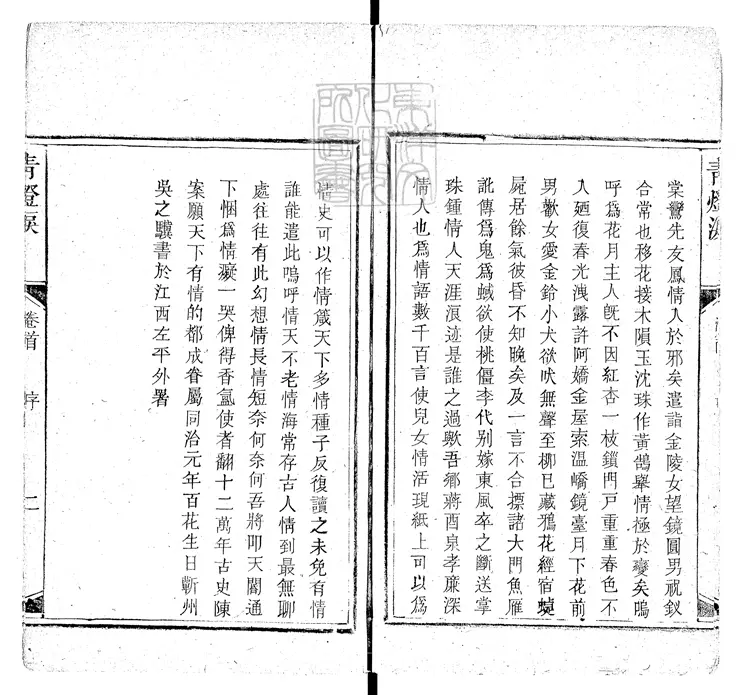 青燈淚
棠鸞先友鳳情人於邪矣遣詣金陵女望鏡圓男祝釵
合常也移花接木隕玉沈珠作黃鵠舉情極於變矣嗚
呼爲花月主人旣不因紅杏一枝鎖門戸重重春色不
入廼復春光洩露許阿嬌金屋索温嶠鏡臺月下花前
男歡女愛金鈴小犬欲吠無聲至柳已藏鴉花經宿蜨
屍居餘氣彼昏不知晚矣及一言不合摽諸大門魚雁
訛傳爲鬼爲蜮欲使桃僵李代别嫁東風卒之斷送掌
珠鍾情人天涯滾迹是誰之過歟吾鄉蔣酉泉孝廉深
情人也爲情語數千百言使兒女情活現紙上可以爲
情史可以作情箴天下多情種子反復讀之未免有情
誰能遣此嗚呼情天不老情海常存古人情到最無聊
處往往有此幻想情長情短奈何奈何吾將叩天閽通
下悃爲情癡一哭俾得香氤使者翻十二萬年古史陳
案願天下有情的都成眷屬同治元年百花生日蘄州
吳之驥書於江西左平外署
青燈淚
卷首
序
二